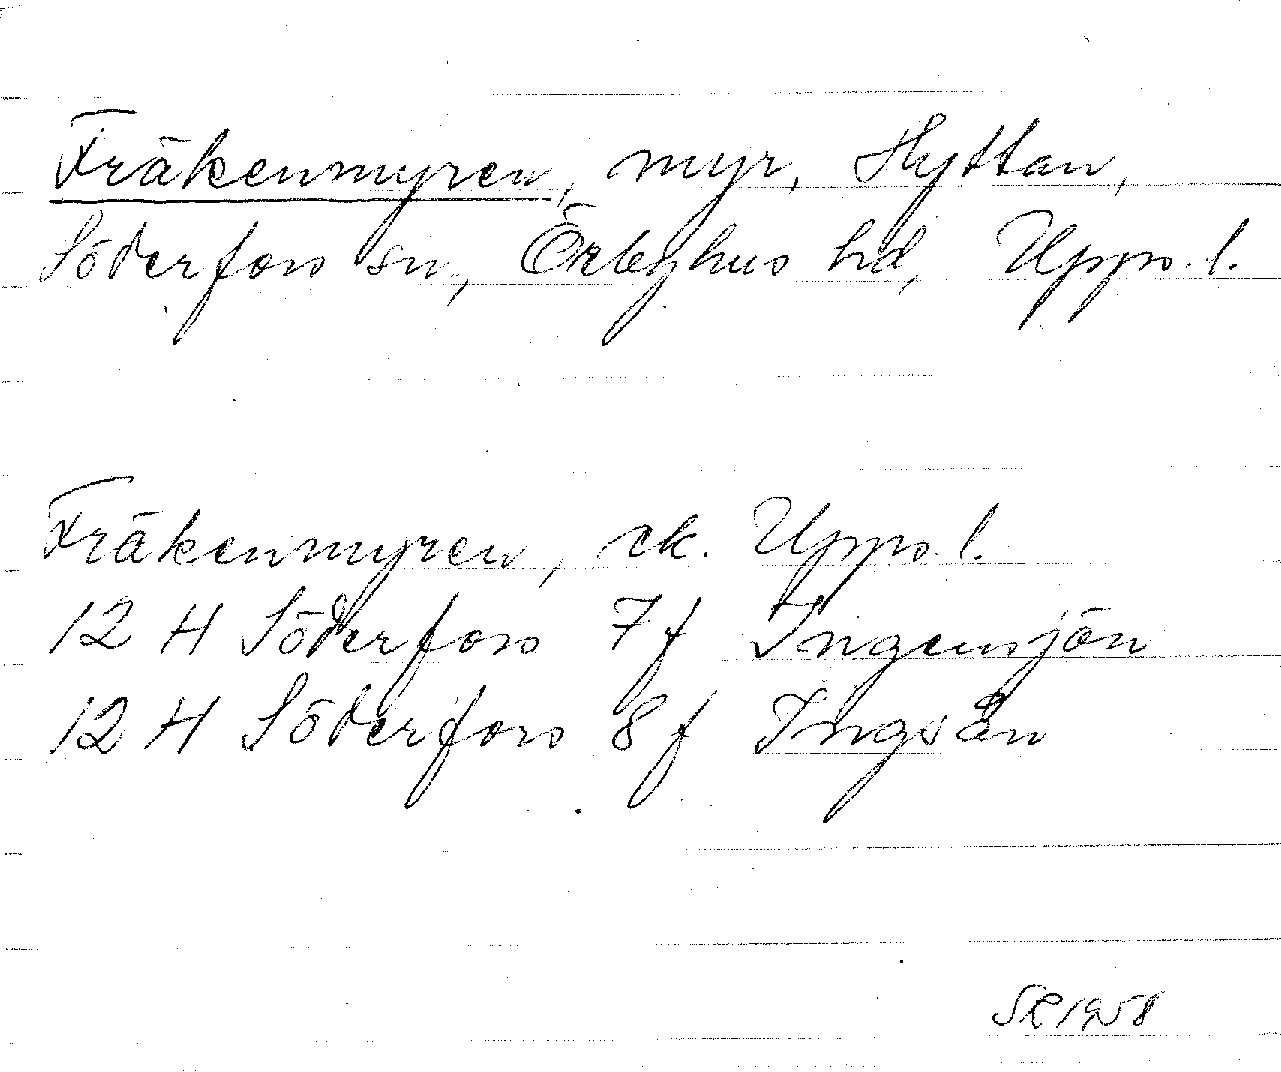 Fräkenmyren, myr, Hyttan,
Söderfors sn, Örbyhus hd, Upps. l.
Fräkenmyren, ek. Upps. l.
12 H Söderfors 7 f Ingensjön
12 H Söderfors 8 f Ingsån
1958